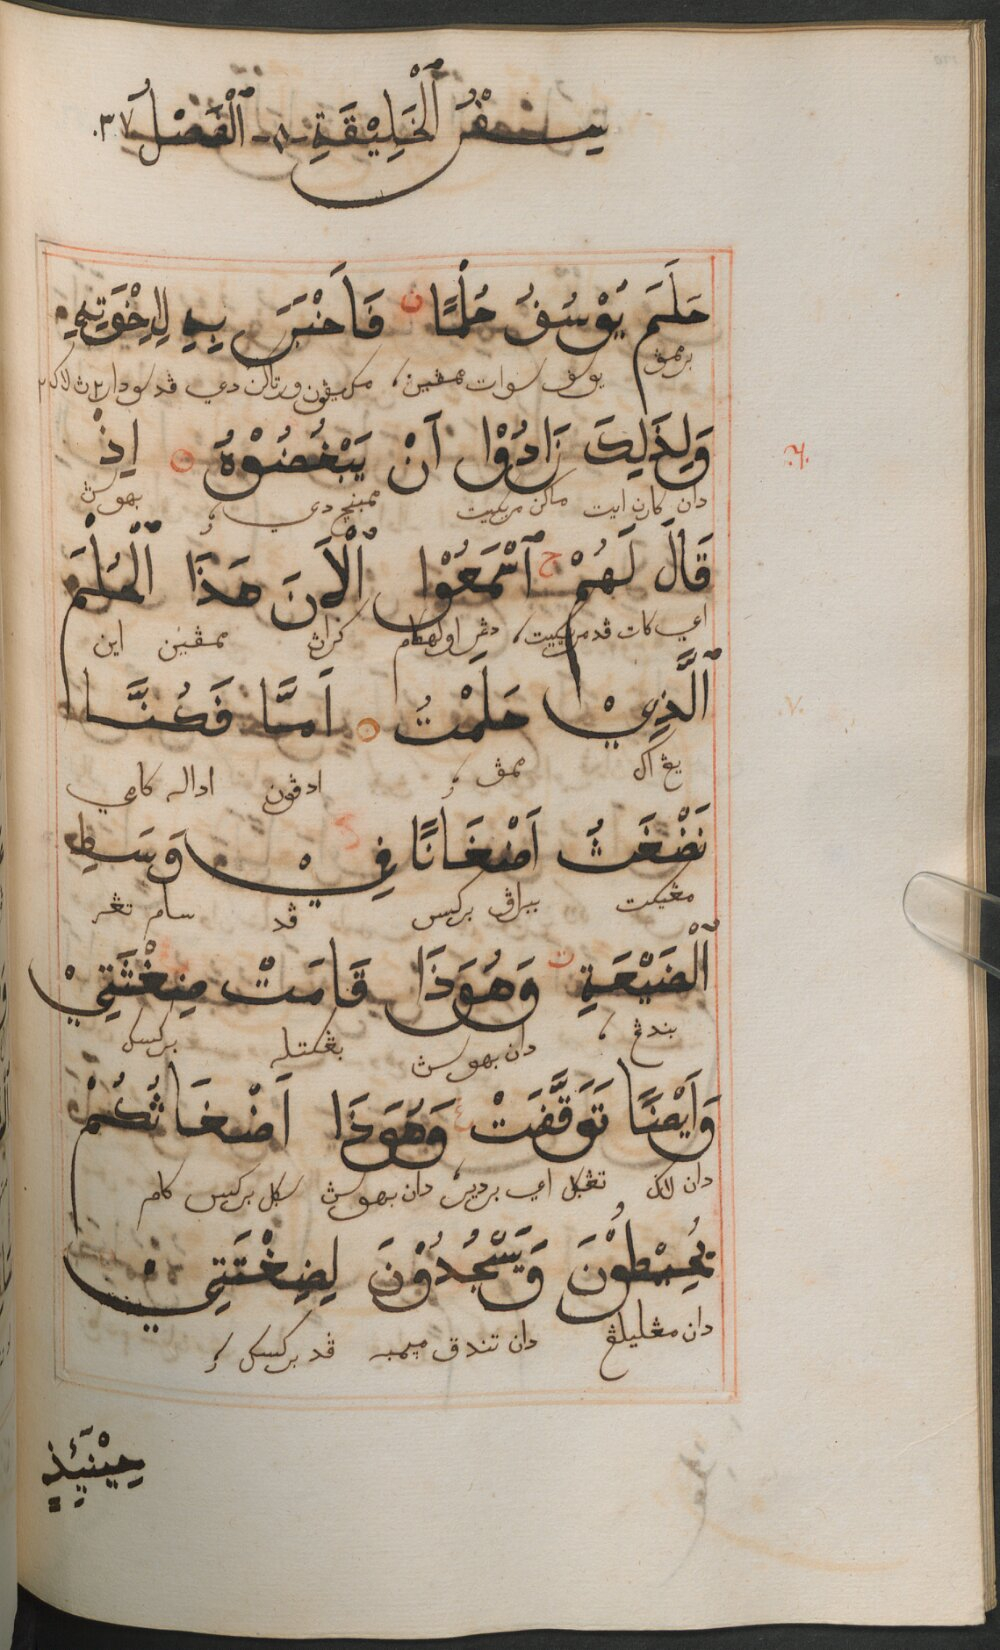 سِفْرُ ٱلْخَلِيْقَةِ -١- ٱلْفَصْلُ ٣٧.
حَلَمَ يُوْسُفُ حُلْمًا ن فَاَخْبَرَ بِهِ لِاِخْوَتِهِ
برممڤ يوسف سوات ممڤين، دي ڤد سودارا٢ث
وَلِذَلِكَ زَادُوْا اَنْ يَبْغُضُوْهُ اِذْ
.٦.
دان كارن ايت ماكن مريكيت ممبنچ دي، بهوسڽ
قَالَ لَهُمْ ح ٱسْمَعُوْا ٱلْاَنَ هَذَا ٱلْحُلْمَ
اي كات ڤد مريكيت، دڠر اولهكام كراڽ ممڤين اين
ٱلَّذِيْ حَلَمْتُ اَمَّا فَكُنَّا
.٧.
يڠ اك ممڤ ادڤون اداله كامي
نَضْغَثُ اَضْغَاثًا فِيْ وَسَطِ
مڠيكت بركس ڤد سام تڠه
ٱلْضَيْعَةِ ن وَهُوَذَا قَامَتْ ضِغْثَتِيْ
بندڠ، دان بهوسڽ بڠكتله بركسك
وَاَيْضًا تَوَقَّفَتْ وَهُوَذَا اَضْغَاثُكُمْ
دان لاݢ اي بردير، دان بهوسڽ سݢل بركس كامو
يُحِيْطُوْنَ وَيَسْجُدُوْنَ لِضِغْثَتِيْ
دان مڠليلڠ دان تندق ميمبه ڤد بركسك
حِيْنَئِذٍ